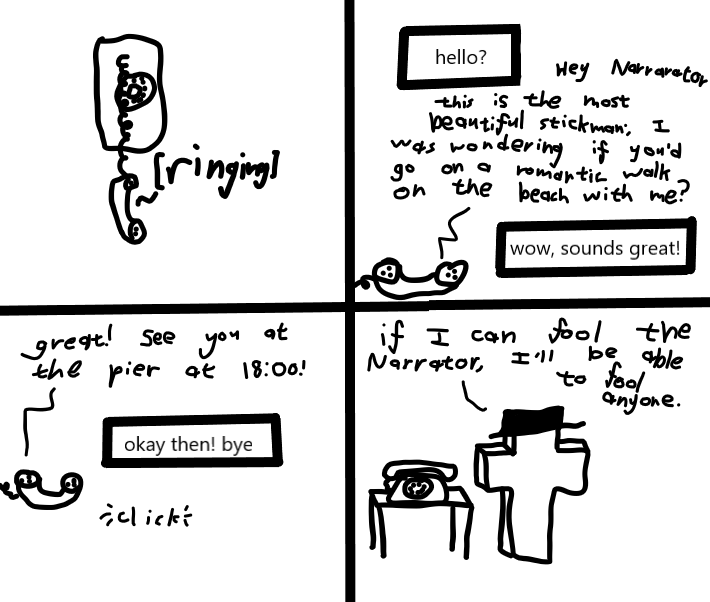 [ringing]
hello?
Hey Narrarator
this is the most
beautiful stickman, I
was wondering if you'd
go on a romantic walk
on the beach with me?
wow, sounds great!
great! see you at
the pier at 18:00!
okay then! bye
click
if I can fool the
Narrator, I'll be able
to fool
anyone.